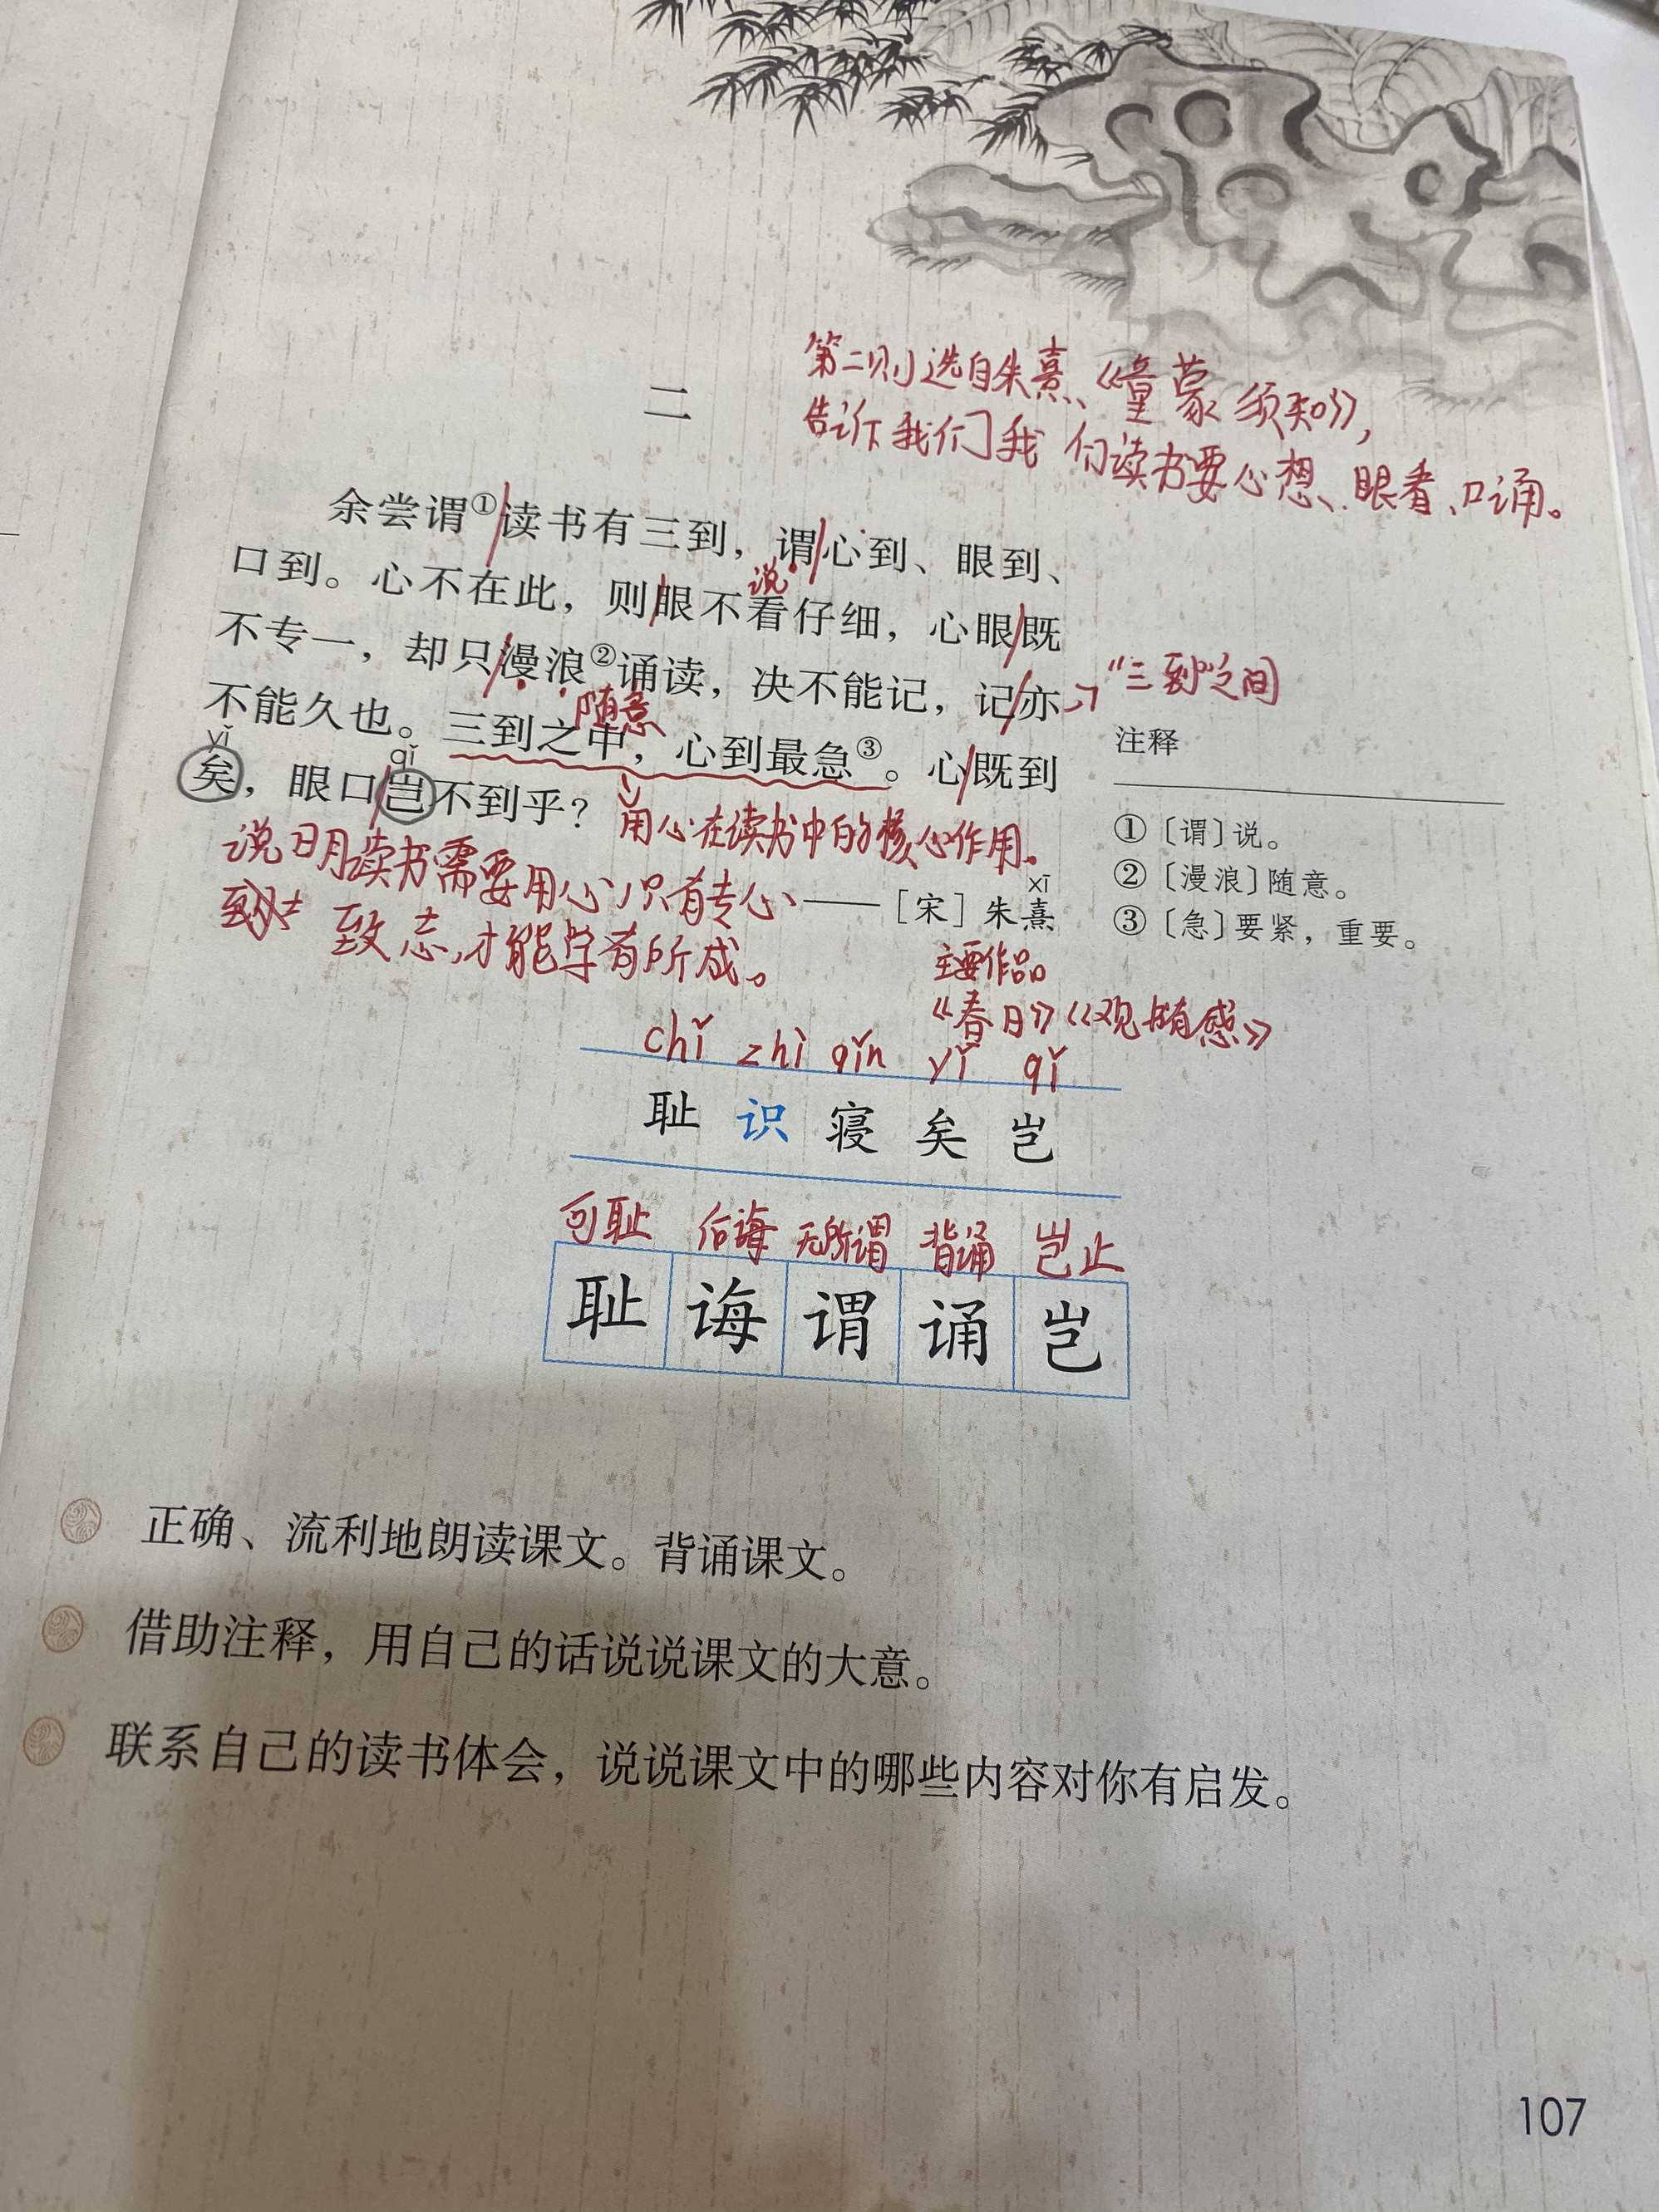 第二则选自朱熹《童蒙须知》,
二
告诉我们我们读书要心想、眼看、口诵。
余尝谓①读书有三到，谓心到、眼到、
说
口到。心不在此，则眼不看仔细，心眼既
不专一，却只漫浪②诵读，决不能记，记亦
"三到"之间
随意
不能久也。三到之中，心到最急③。心既到
yǐ
qǐ
矣，眼口岂不到乎？
用心在读书中的核心作用。
说明读书需要用心,只有专心
致志,才能学有所成。
——［宋］朱熹
xī
注释
①〔谓〕说。
②〔漫浪〕随意。
③〔急〕要紧，重要。
主要作品
《春日》《观书有感》
chǐ zhì qǐn yǐ qǐ
耻 识 寝 矣 岂
可耻 后诲 无所谓 背诵 岂止
耻 诲 谓 诵 岂
正确、流利地朗读课文。背诵课文。
借助注释，用自己的话说说课文的大意。
联系自己的读书体会，说说课文中的哪些内容对你有启发。
107